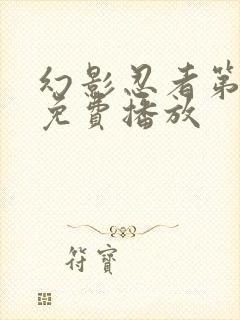 幻影忍者第
免費播放
符寶